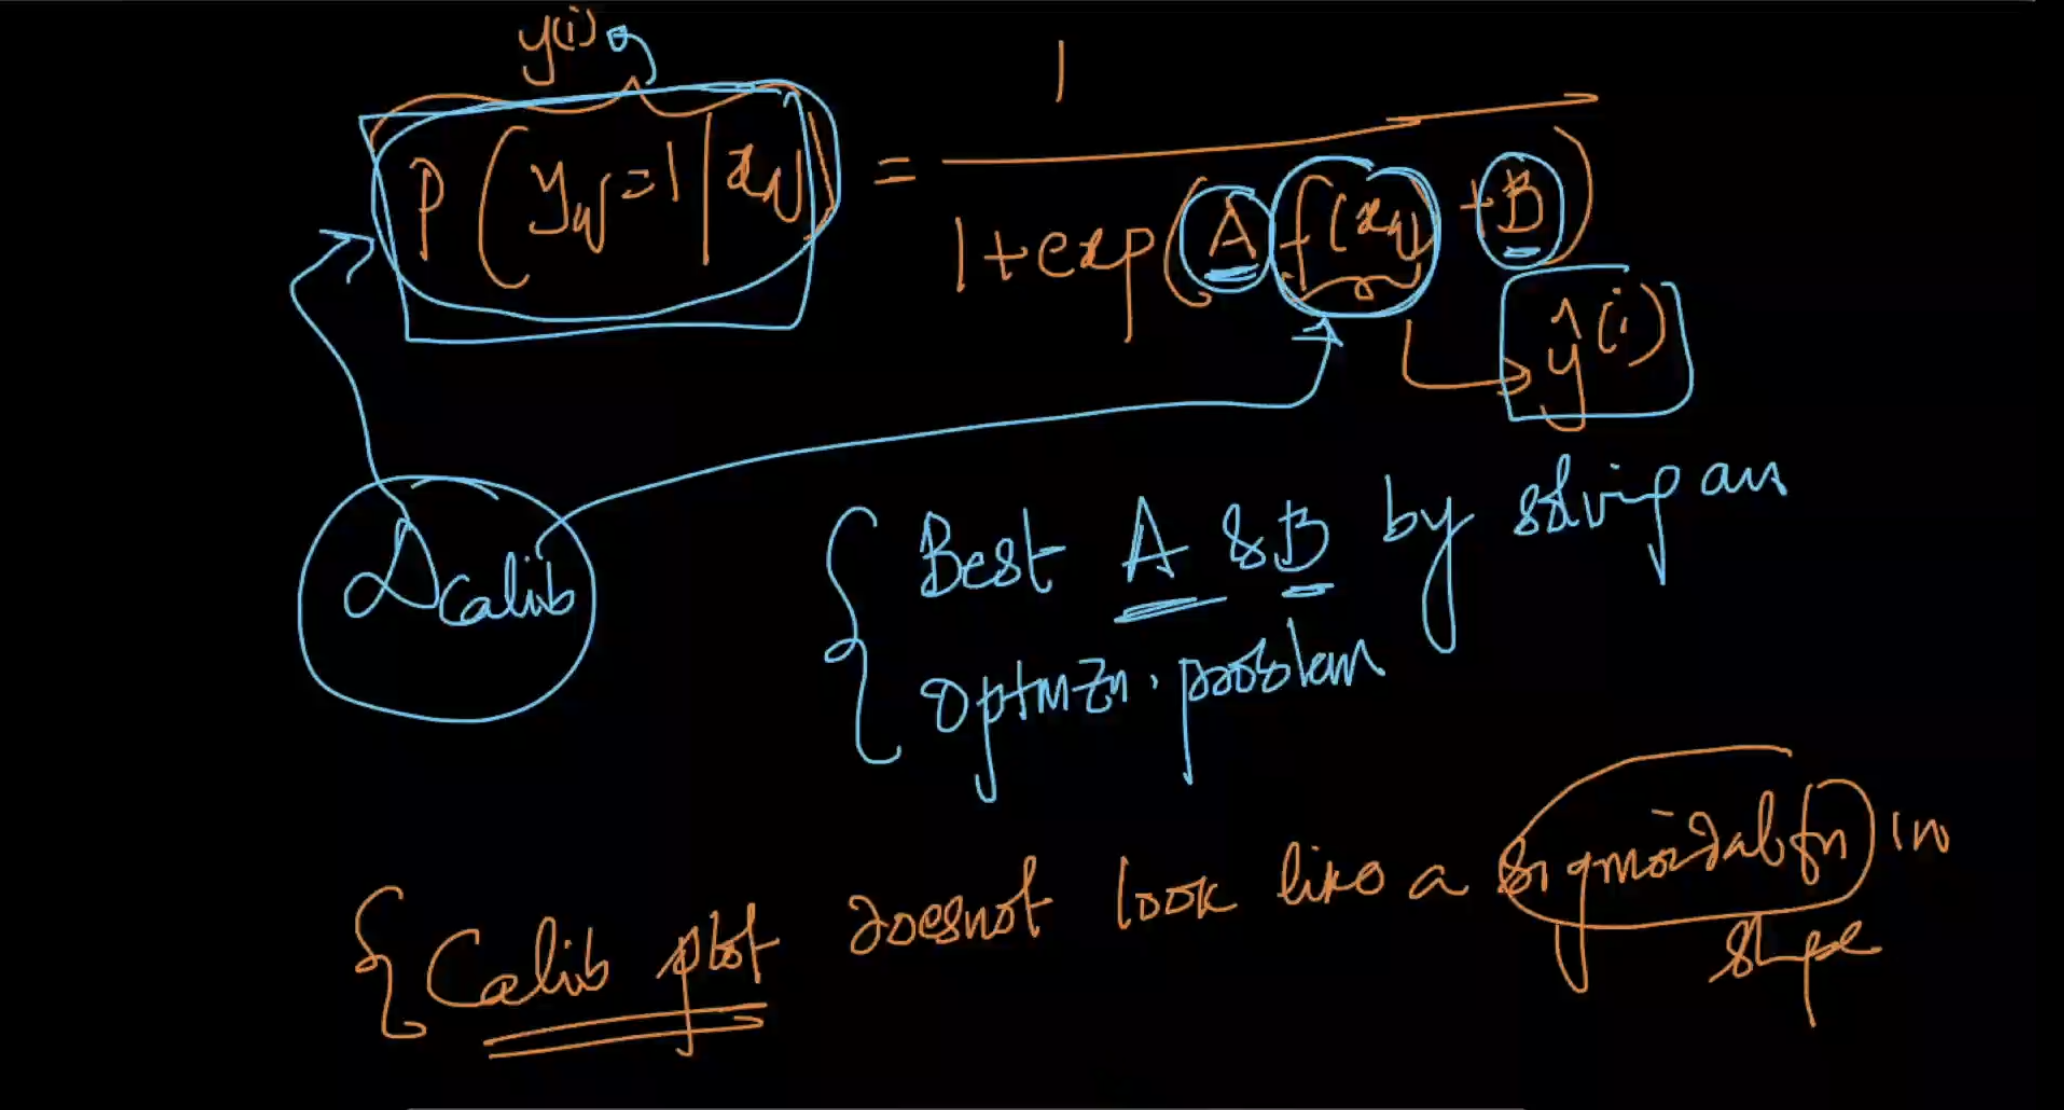 y(i)
P(y_i=1|x_i) = 1
1+exp(A f(x_i) +B)
ŷ(i)
Dcalib
Best A & B by solving an
optmzn. problem
Calib plot doesnot look like a sigmoidal fn in
shpe